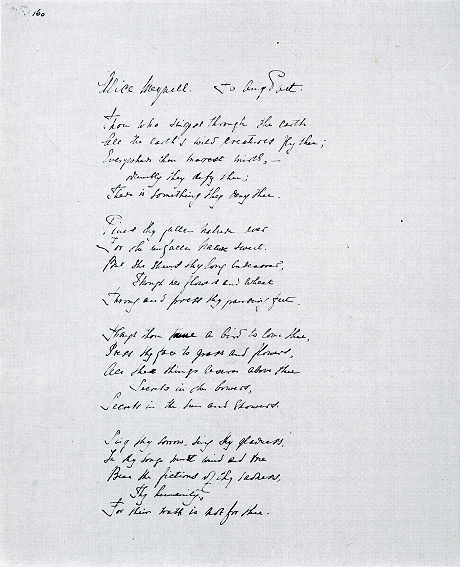 160
Alice Meynell. To Any Poet.
Thou who singest through the earth
All the earth's wild creatures fly thee;
Everywhere thou marrest mirth, —
Dumbly they defy thee;
There is something they deny thee.
Pines thy fallen nature ever
For the unfallen Nature sweet.
But she shuns thy long endeavour,
Though her flowers and wheat
Throng and press thy pausing feet.
Though thou tame a bird to love thee,
Press thy face to grass and flowers,
All these things reserve above thee
Secrets in the bowers,
Secrets in the sun and showers.
Sing thy sorrow, sing thy gladness,
In thy songs must wind and tree
Bear the fictions of thy sadness,
Thy humanity.
For their truth is not for thee.